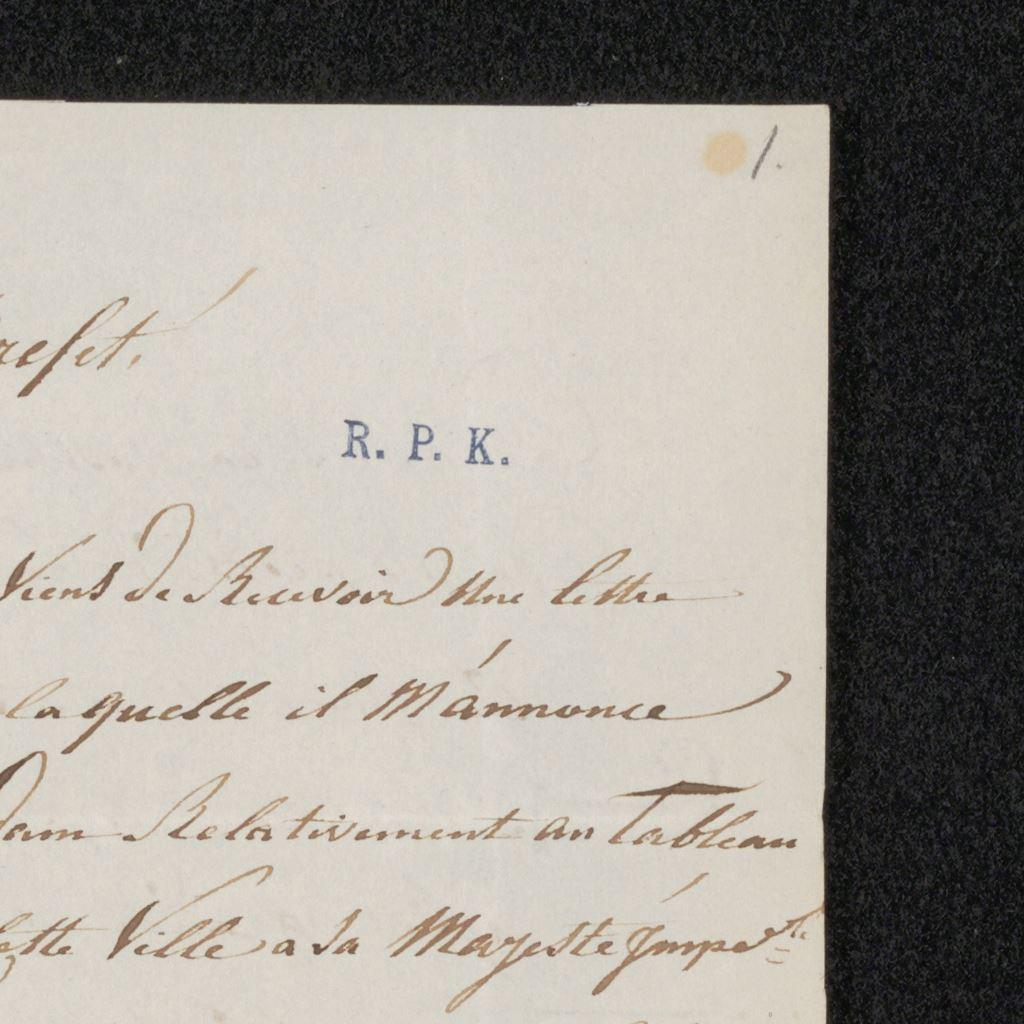 1.
refet.
R. P. K.
Viens de Recevoir Une lettre
laquelle il M'annonce
dam Relativement au Tableau
Cette Ville a Sa Majesté Imp.le